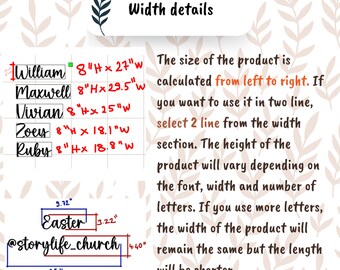 Width details
William 8"H x 27"W
Maxwell 8"H x 29.5"W
Vivian 8"H x 25"W
Zoey 8"H x 18.1"W
Ruby 8"H x 18.8"W
9.72"
Easter
3.22"
@storylife_church
4.40"
The size of the product is
calculated from left to right. If
you want to use it in two line,
select 2 line from the width
section. The height of the
product will vary depending on
the font, width and number of
letters. If you use more letters,
the width of the product will
remain the same but the length
will be shorter